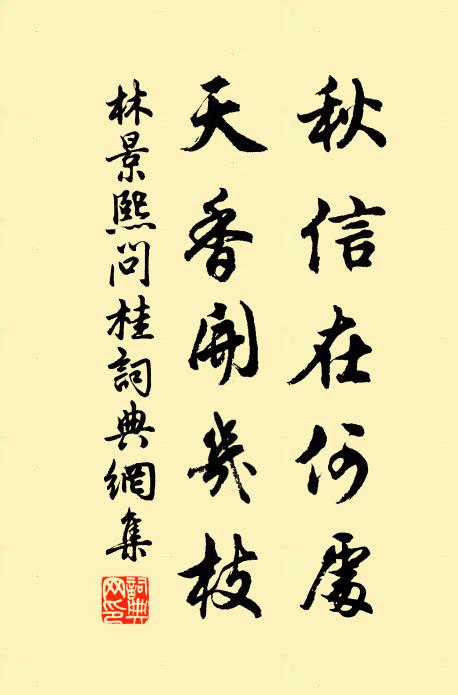 秋信在何處
天香開幾枝
林景熙問桂詞典網集
詞典網印